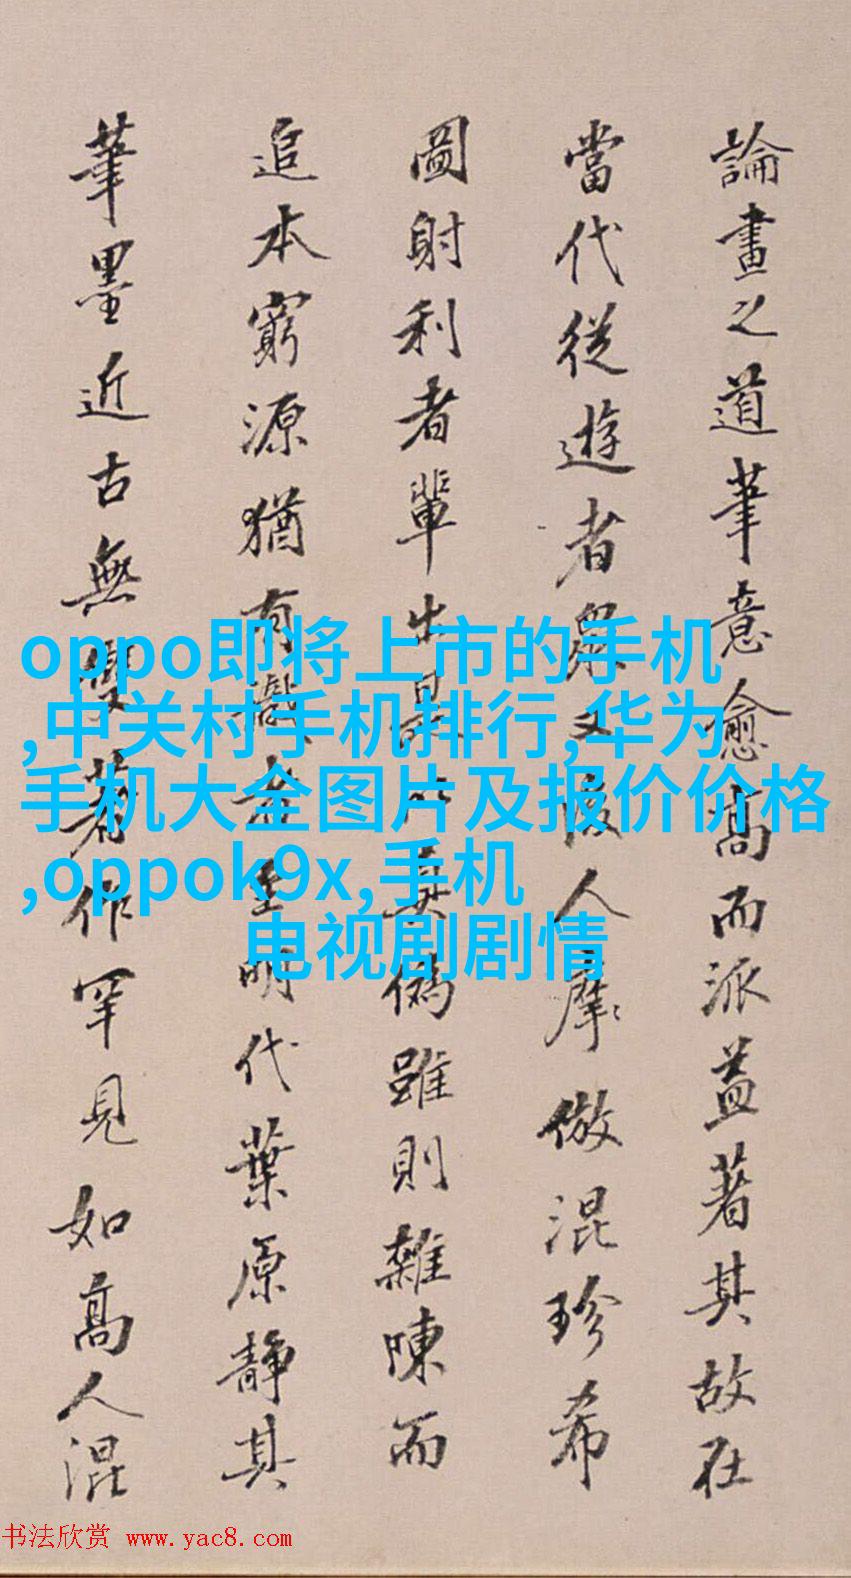 論畫之道筆意愈高而派益著其故在
當代從遊者眾又後人摩倣混珍希
圖射利者輩出是以真偽雖則雜陳而
追本窮源猶有識者至明代葉原靜其
筆墨近古無雙著作罕見如高人混
oppo即将上市的手机
,中关村手机排行,华为
手机大全图片及报价价格
,oppok9x,手机
电视剧剧情
书法欣赏 www.yac8.com